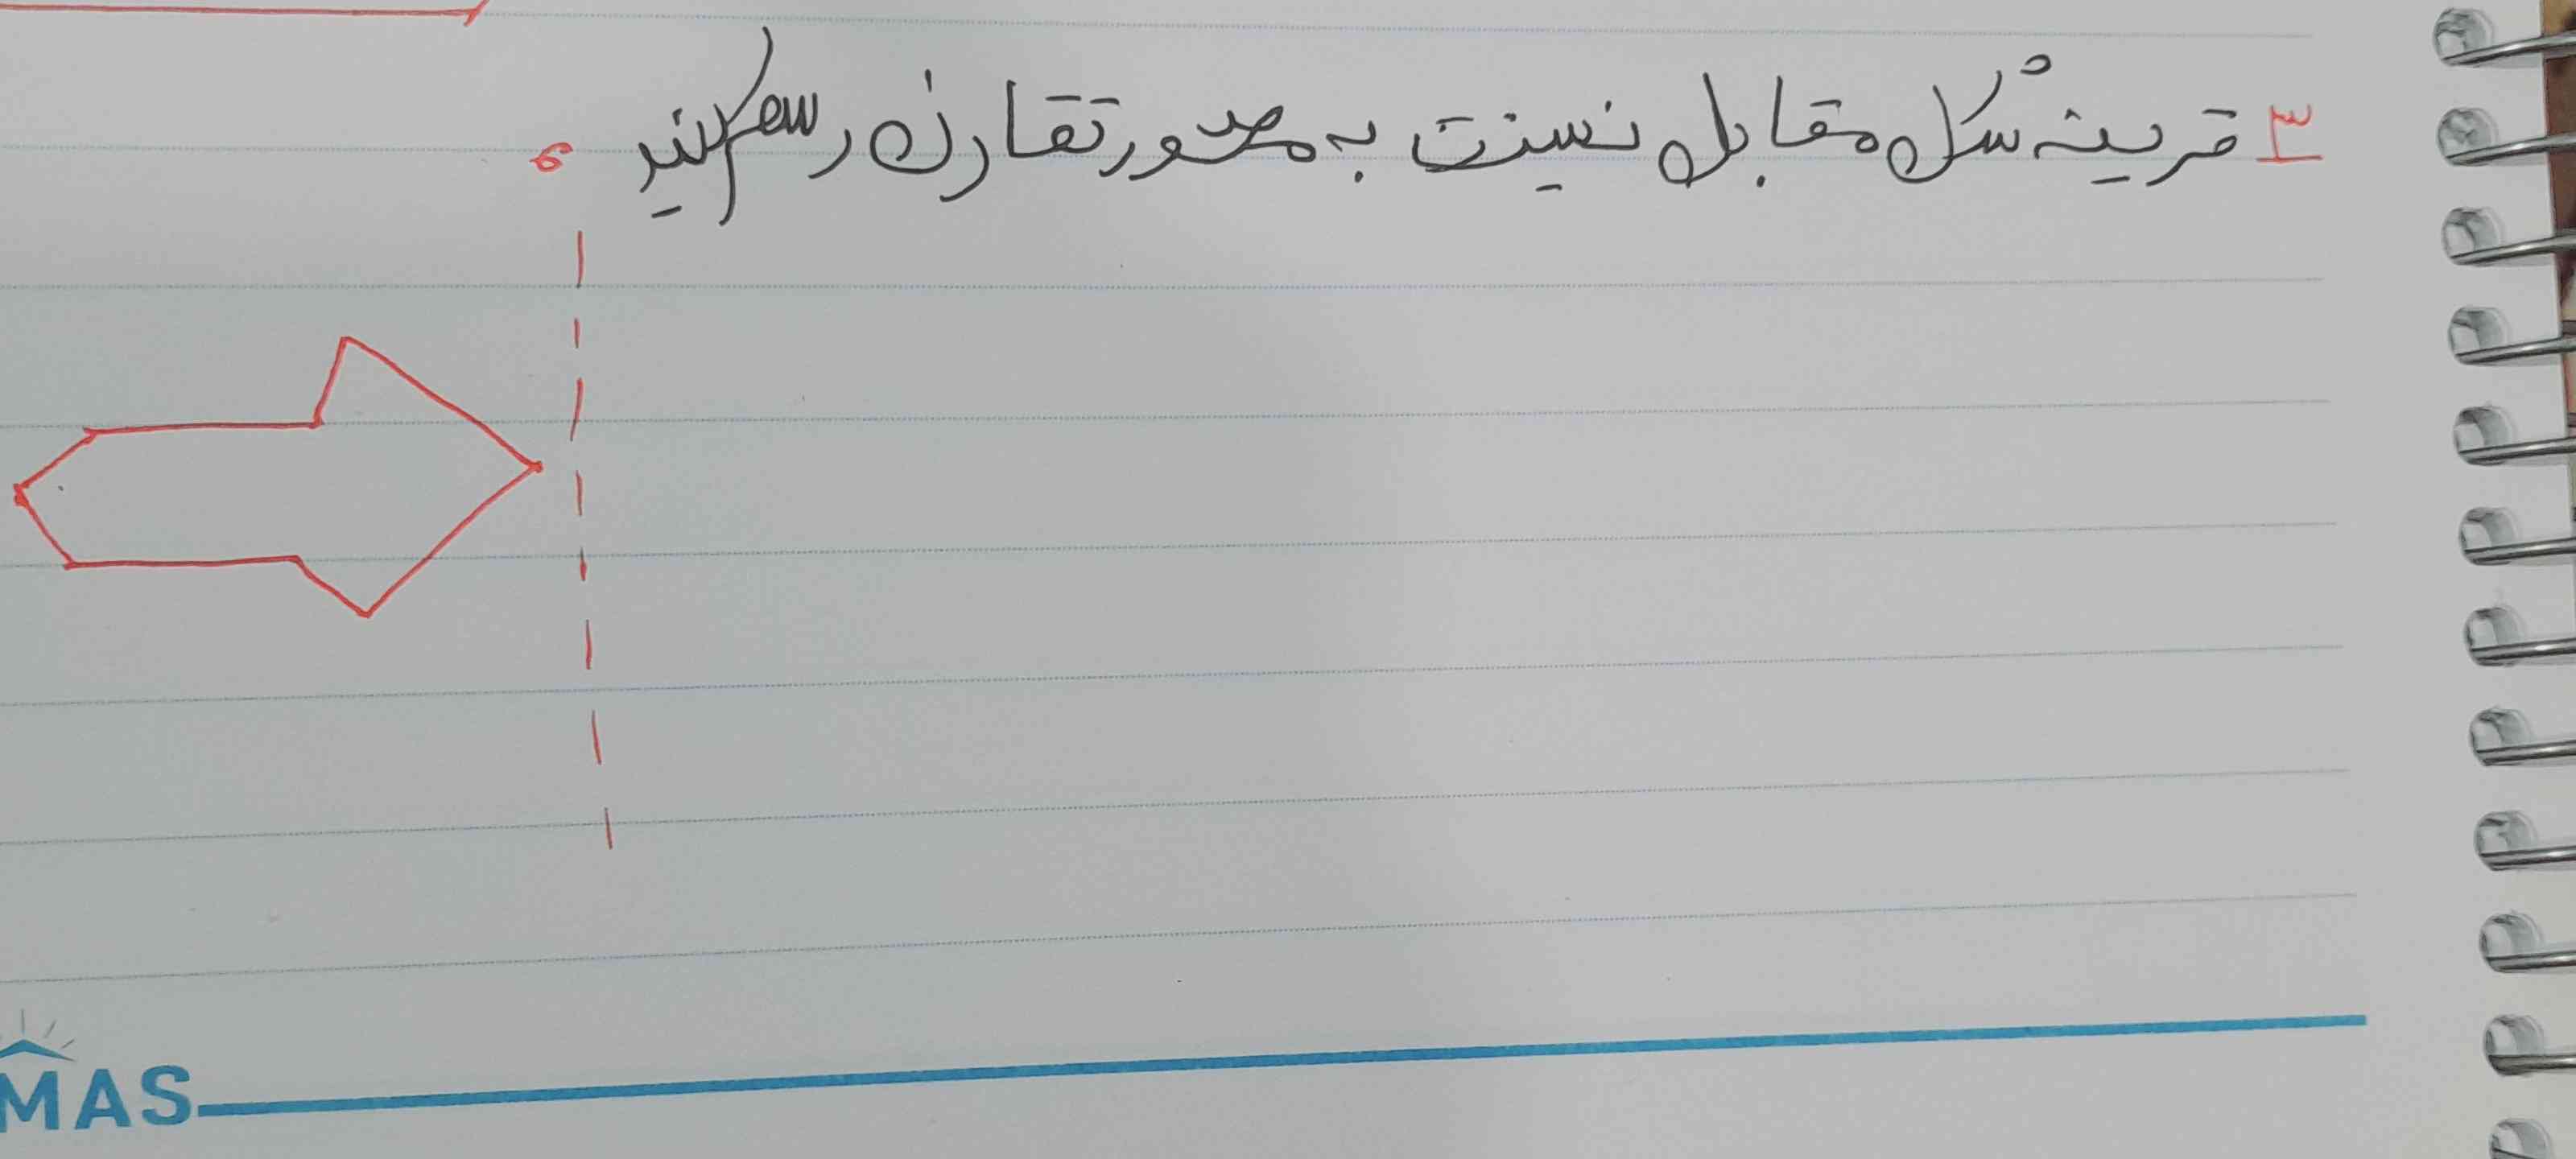 ۳ قرینه شکل مقابل نسبت به محور تقارن رسم کنید .
MAS